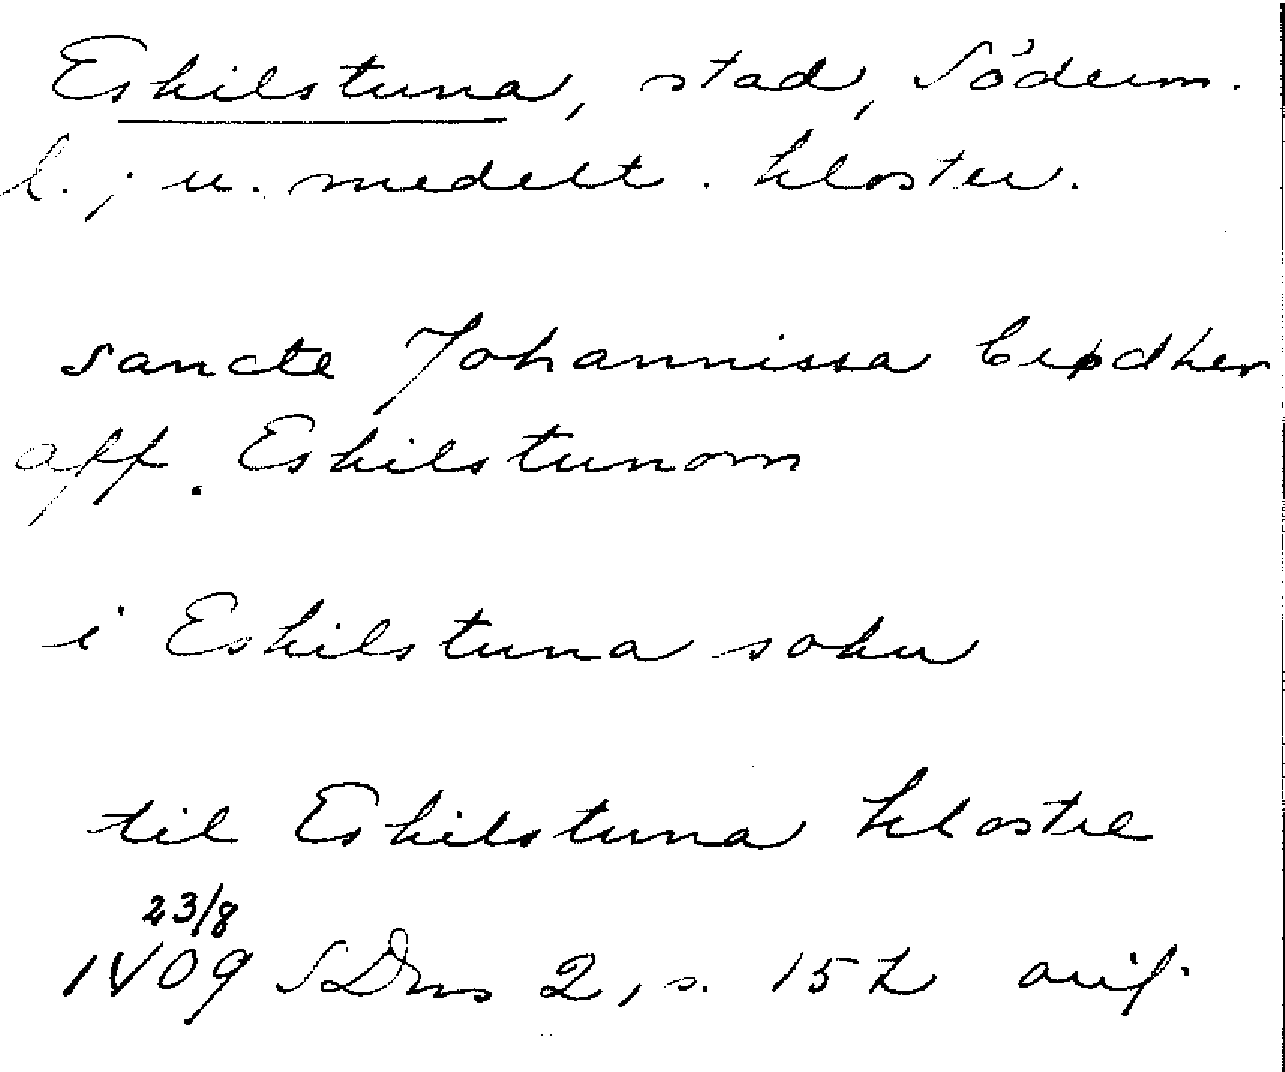 Eskilstuna, stad, Söderm.
l.; u. medelt. kloster.
sancte Johannissa brødher
aff. Eskilstunom
i Eskilstuna sokn
til Eskilstuna klostre
23/8
1409 SDns 2, s. 152 orig.